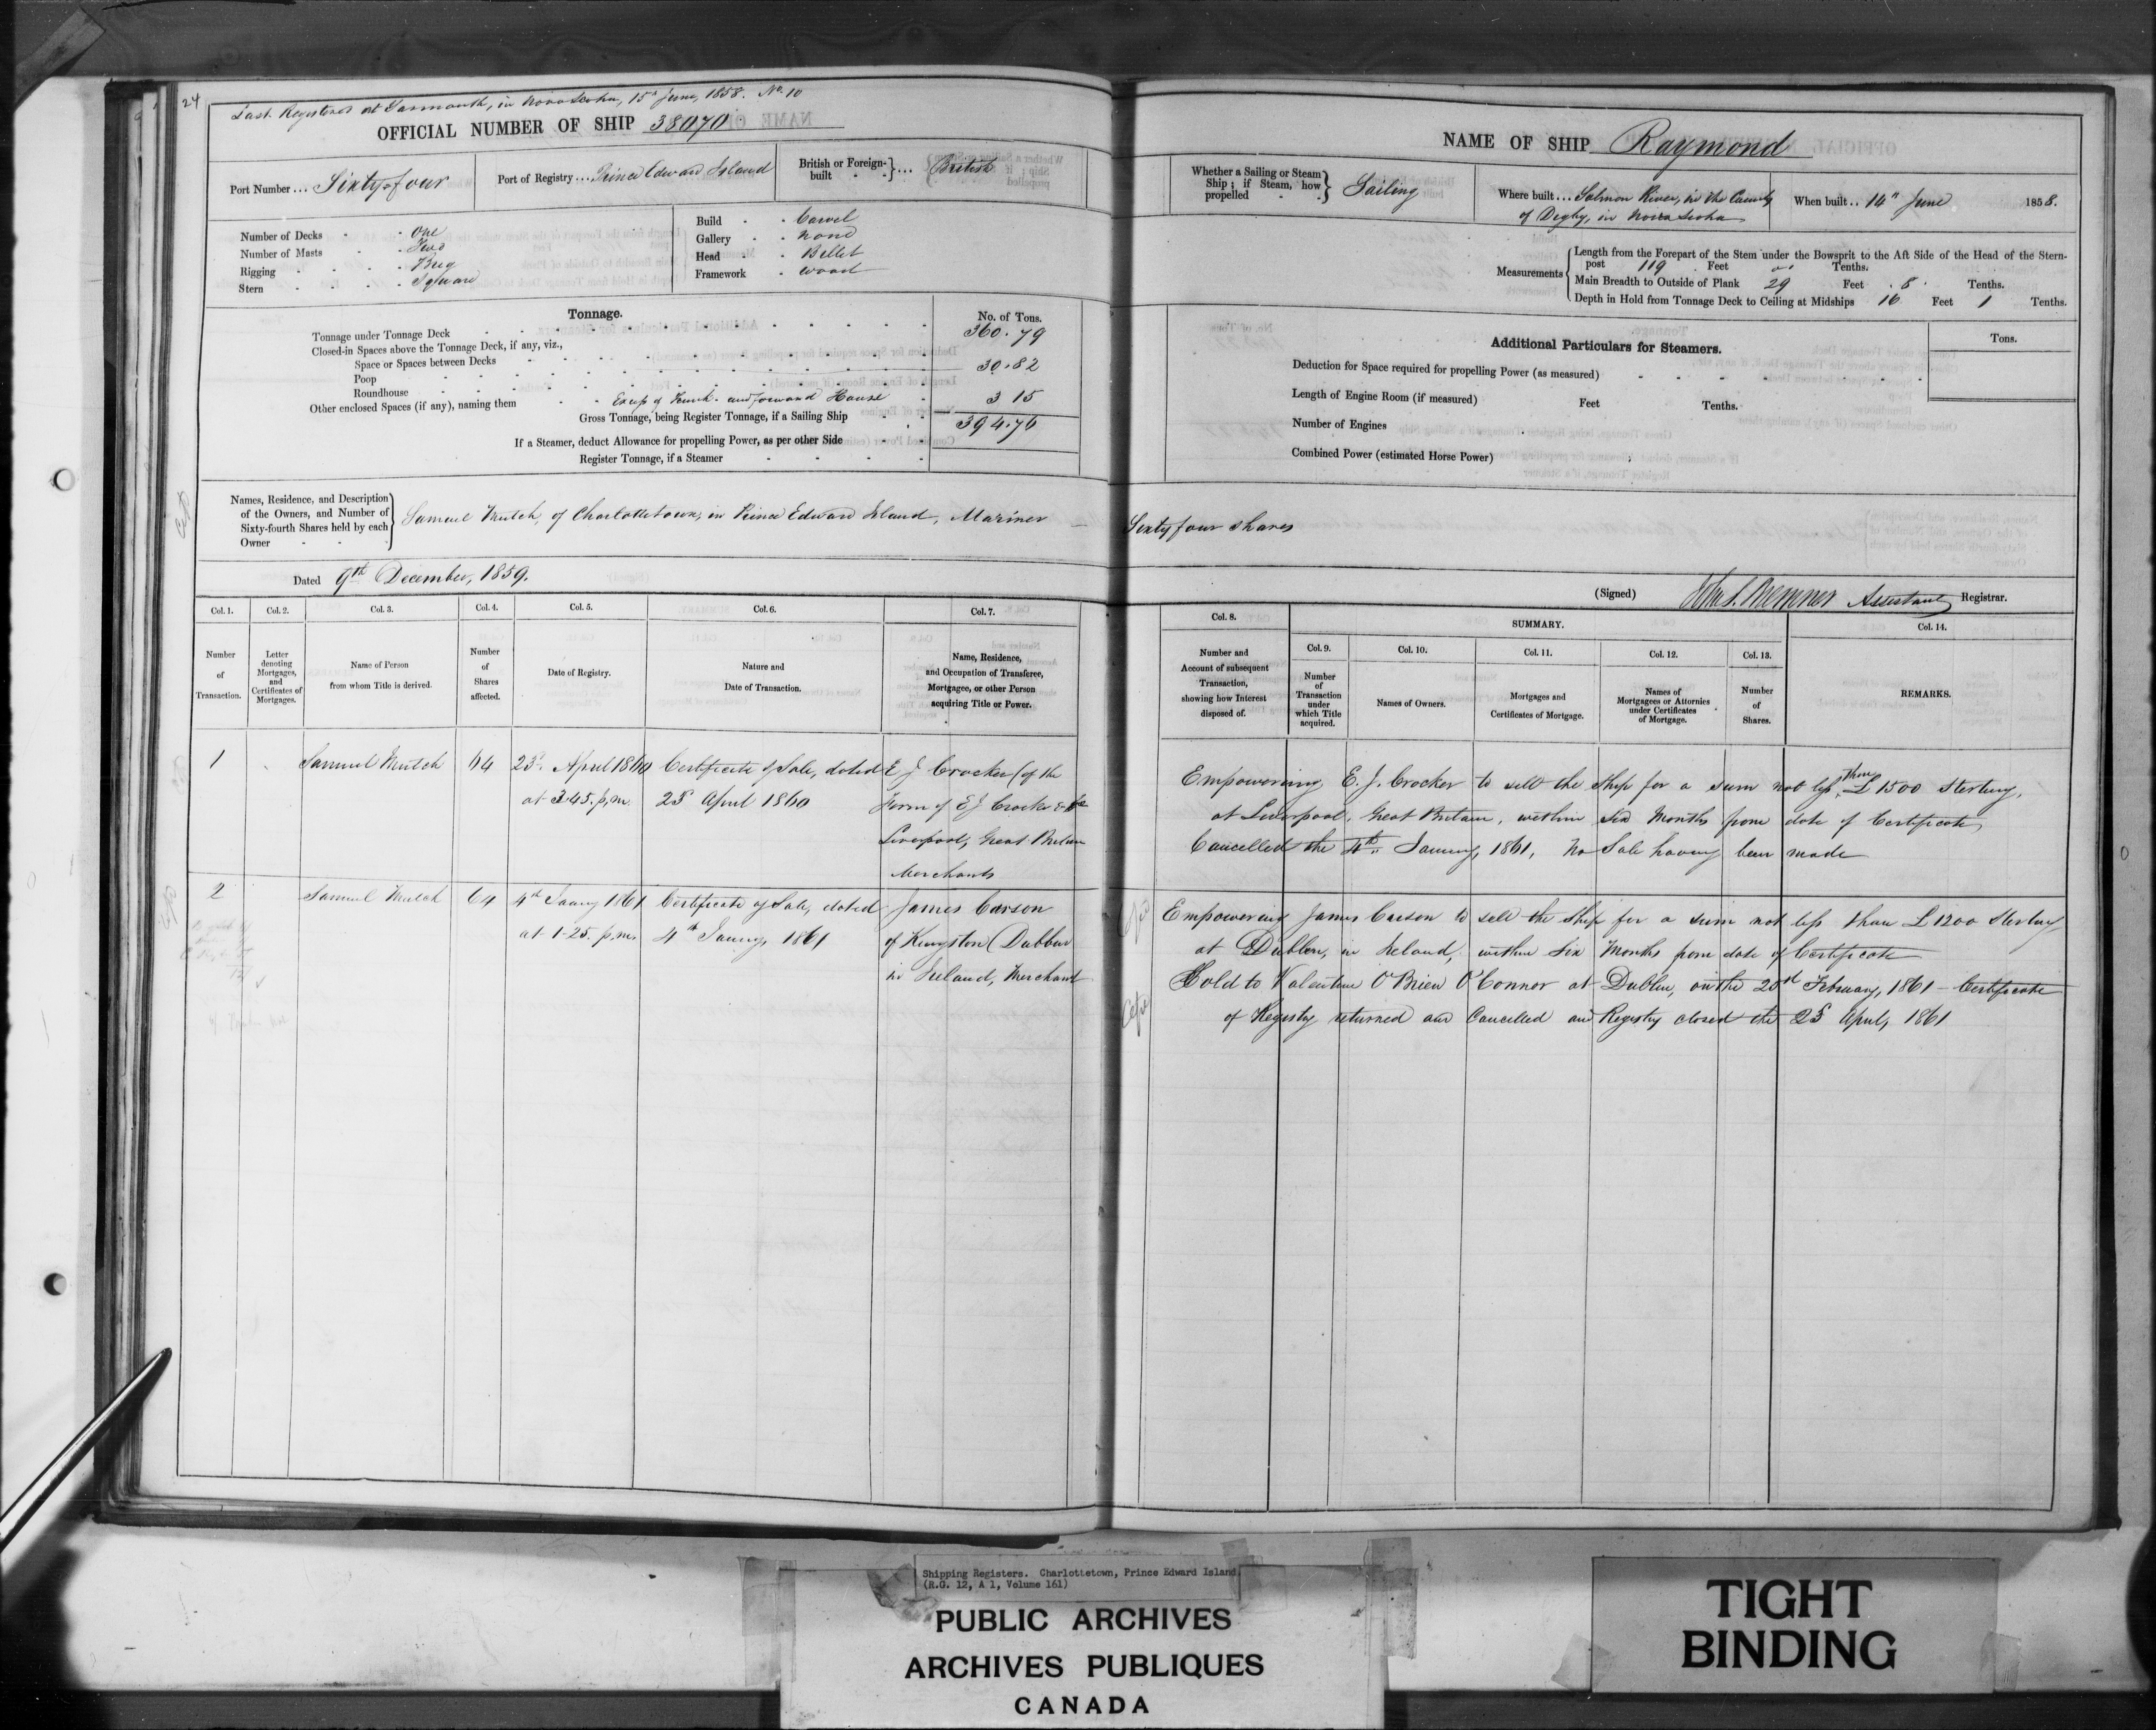 24
Last Registered at Yarmouth, in Nova Scotia, 15th June, 1858. No. 10
OFFICIAL NUMBER OF SHIP 38070
NAME OF SHIP Raymond
Port Number ... Sixty-four
Port of Registry .... Prince Edward Island
British or Foreign-built } ... British
Whether a Sailing or Steam Ship; if Steam, how propelled } Sailing
Where built ... Salmon River, in the County
of Digby, in Nova Scotia
When built .. 14th June 1858.
Number of Decks - - One
Number of Masts - Two
Rigging - - - - Brig
Stern - - - - Square
Build - - Carvel
Gallery - - none
Head - - Billet
Framework - wood
Measurements { Length from the Forepart of the Stem under the Bowsprit to the Aft Side of the Head of the Stern-
post 119 Feet Tenths.
Main Breadth to Outside of Plank 29 Feet 8 Tenths.
Depth in Hold from Tonnage Deck to Ceiling at Midships 16 Feet 1 Tenths.
Tonnage.
No. of Tons.
Tonnage under Tonnage Deck 360.79
Closed-in Spaces above the Tonnage Deck, if any, viz.,
Space or Spaces between Decks
Poop 30.82
Roundhouse
Other enclosed Spaces (if any), naming them and forward House 3 15
Gross Tonnage, being Register Tonnage, if a Sailing Ship 394.76
If a Steamer, deduct Allowance for propelling Power, as per other Side
Register Tonnage, if a Steamer
Additional Particulars for Steamers.
Tons.
Deduction for Space required for propelling Power (as measured)
Length of Engine Room (if measured) Feet Tenths.
Number of Engines
Combined Power (estimated Horse Power)
Names, Residence, and Description
of the Owners, and Number of
Sixty-fourth Shares held by each
Owner
Samuel Mutch, of Charlottetown, in Prince Edward Island, Mariner — Sixty four shares
Dated 9th December, 1859.
(Signed) Assistant Registrar.
Col. 1.
Col. 2.
Col. 3.
Col. 4.
Col. 5.
Col. 6.
Col. 7.
Number of Transaction.
Letter denoting Mortgages, and Certificates of Mortgages.
Name of Person from whom Title is derived.
Number of Shares affected.
Date of Registry.
Nature and Date of Transaction.
Name, Residence, and Occupation of Transferee, Mortgagee, or other Person acquiring Title or Power.
Col. 8.
SUMMARY.
Col. 14.
Col. 9.
Col. 10.
Col. 11.
Col. 12.
Col. 13.
Number and Account of subsequent Transaction, showing how Interest disposed of.
Number of Transaction under which Title acquired.
Names of Owners.
Mortgages and Certificates of Mortgage.
Names of Mortgagees or Attornies under Certificates of Mortgage.
Number of Shares.
REMARKS.
1 Samuel Mutch 64 23d. April 1860 Certificate of Sale, dated E J Crocker (of the
at 3.45. p.m. 23d April 1860 Firm of E J Crocker & Co
Liverpool, Great Britain
Merchants
Empowering E. J. Crocker to sell the Ship for a sum not less than £1500 Sterling,
at Liverpool, Great Britain, within Six Months from date of Certificate
Cancelled the 4th January, 1861, No Sale having been made
2 Samuel Mutch 64 4th Jany 1861 Certificate of Sale, dated James Carson
at 1-25. p.m. 4th Jany, 1861 of Kingston (Dublin
in Ireland, Merchant
Empowering James Carson to sell the Ship for a sum not less than £1200 Sterling
at Dublin, in Ireland, within Six Months from date of Certificate
Sold to Valentine O'Brien O'Connor at Dublin, on the February, 1861 - Certificate
of Registry returned and Cancelled and Registry closed the April, 1861
Shipping Registers. Charlottetown, Prince Edward Island
(R.G. 12, A 1, Volume 161)
PUBLIC ARCHIVES
ARCHIVES PUBLIQUES
CANADA
TIGHT
BINDING